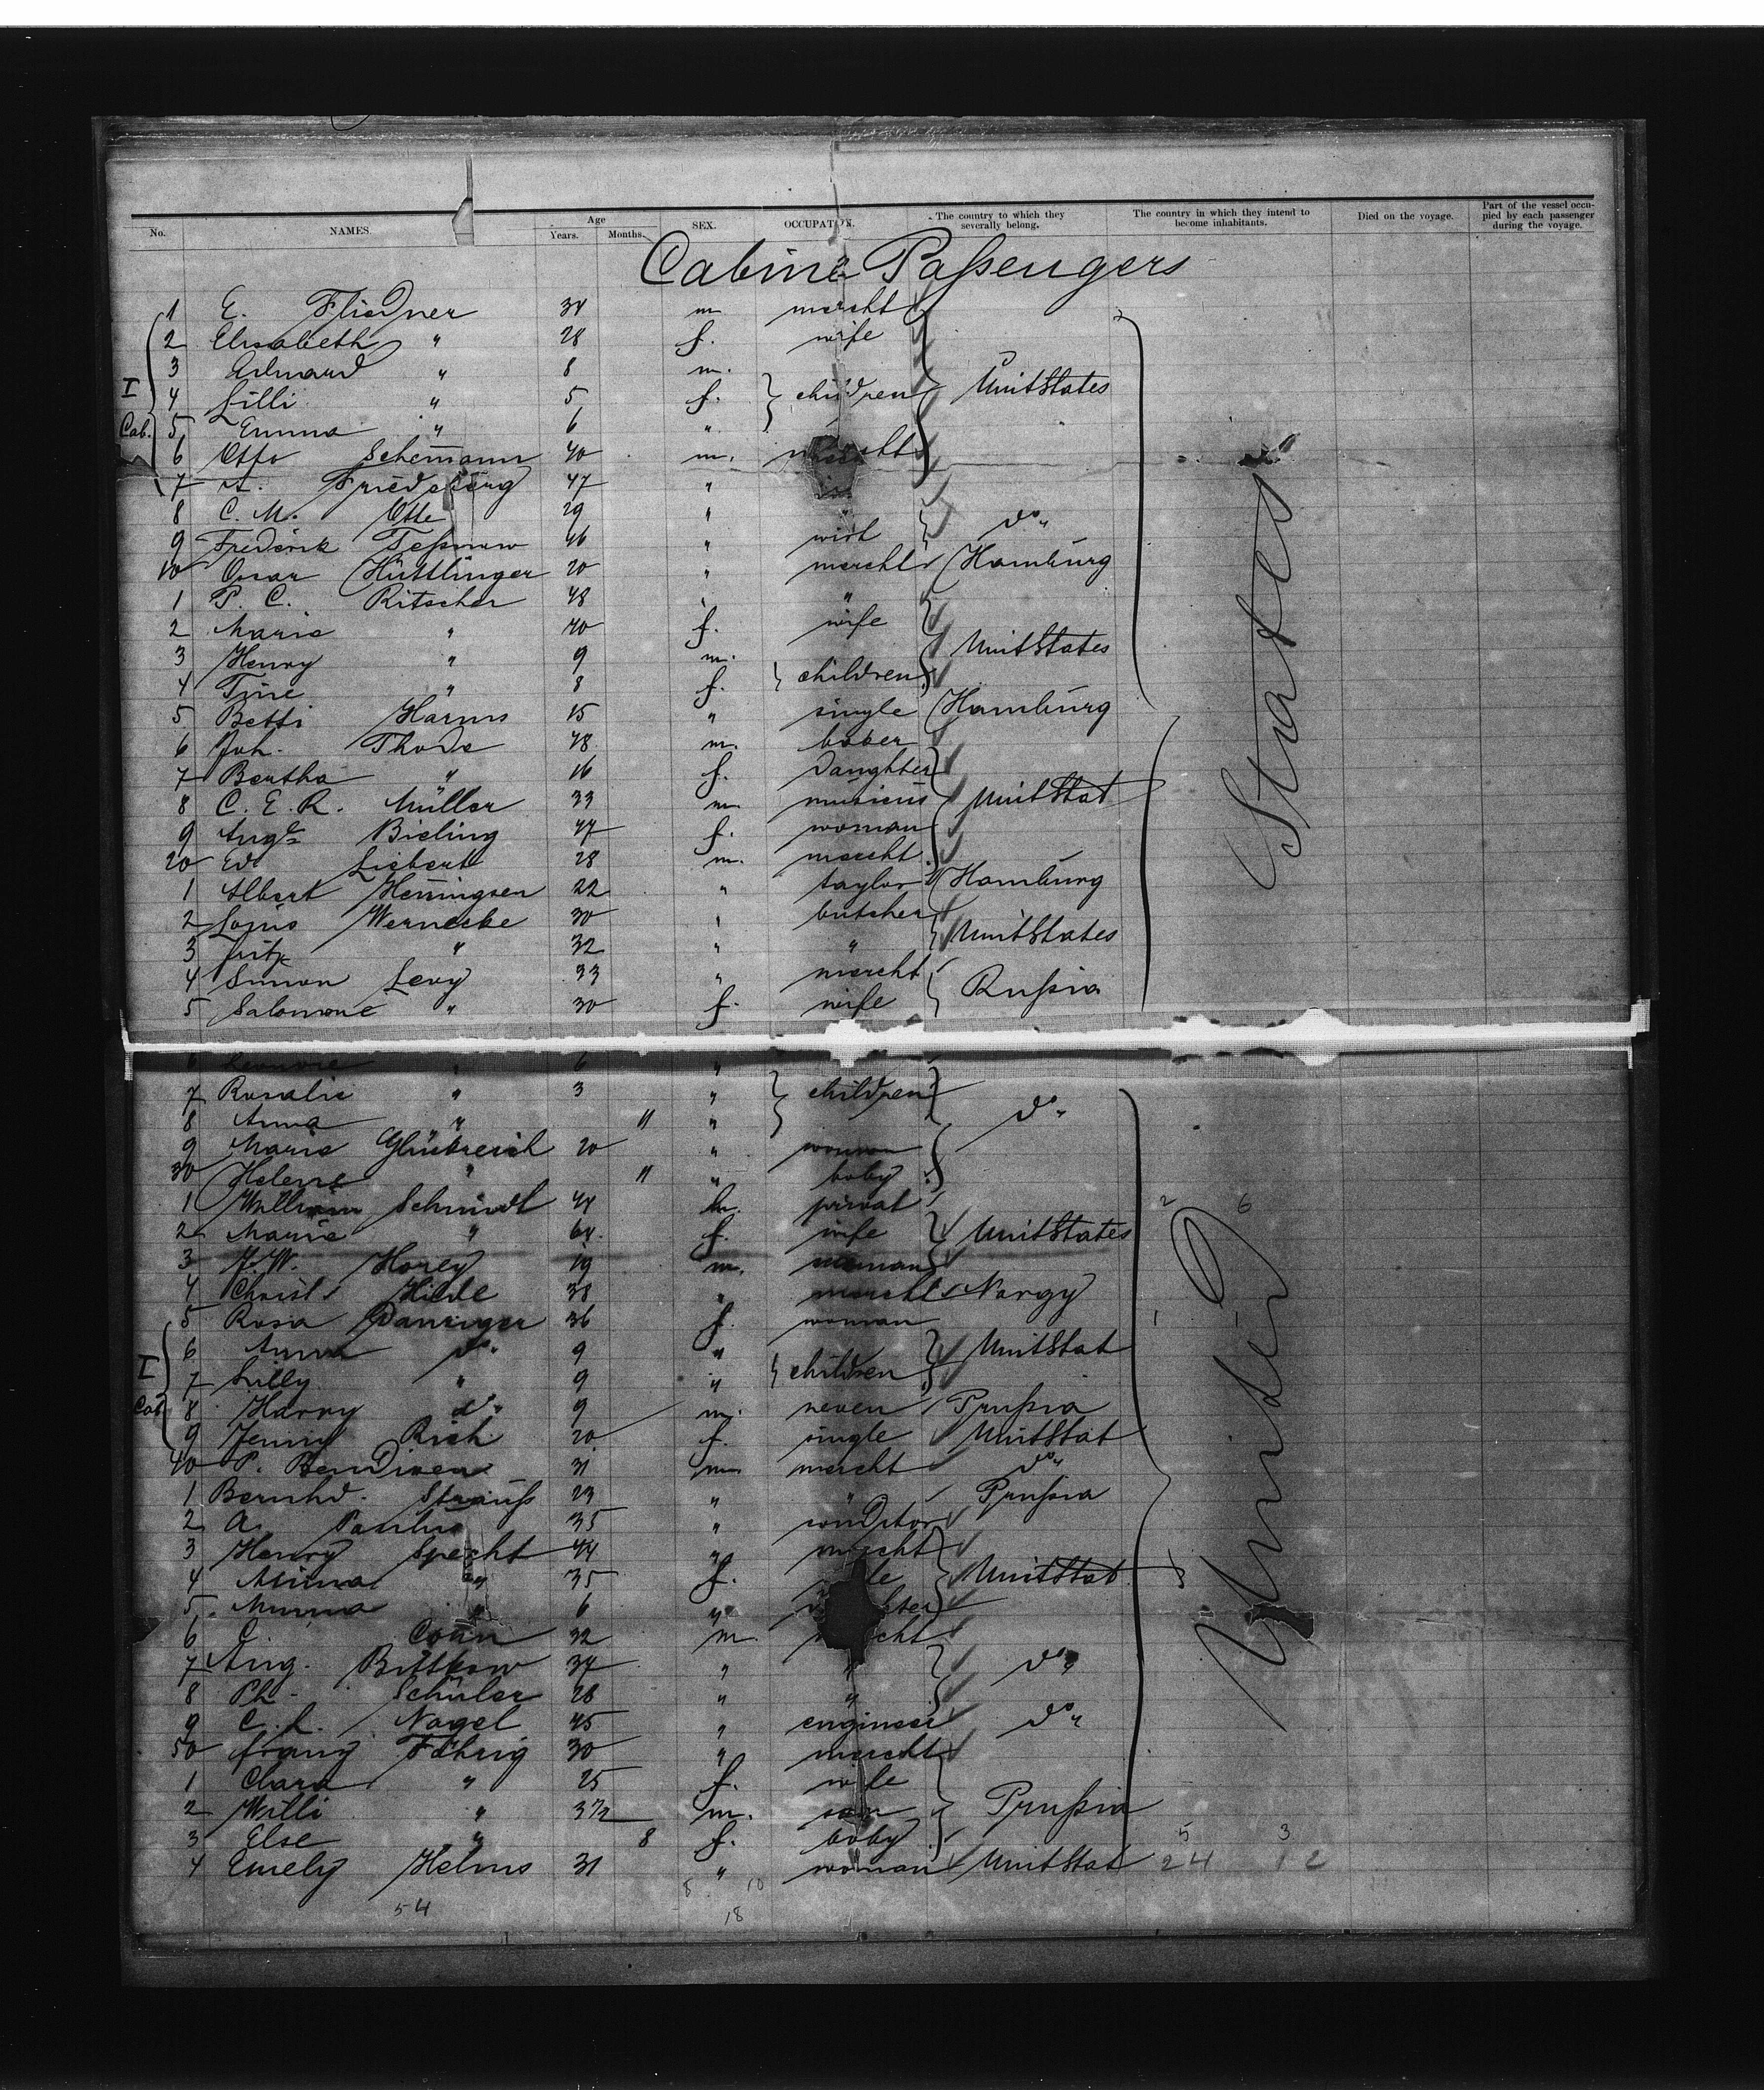 No. NAMES. Age Years. Months. SEX. OCCUPATION. The country to which they severally belong. The country in which they intend to become inhabitants. Died on the voyage. Part of the vessel occupied by each passenger during the voyage.
Cabine Paßengers
1 E. Fliedner 34 m mercht
2 Elisabeth " 28 f. wife
3 " 8 m.
I 4 Lilli " 5 f. children UnitStates
Cab. 5 Emma " 6 "
6 Otto Schemann 40 m.
7 A. Friedeberg 47 "
8 C. M. Otte 29 " "
9 Frederik 46 " wirt do"
10 Oscar Hüttlinger 20 " mercht Hamburg
1 P. C. Ritscher 48 " "
2 Marie " 40 f. wife
3 Henry " 9 m. UnitStates
4 Tine " 8 f. children
5 Betti Harms 15 " single Hamburg
6 Joh. Thode 48 m.
7 Bertha " 16 f. daughter
8 C. E. R. Müller 33 m. musicus UnitStat
9 Augte Bieling 47 f. woman
20 Ed. Liebert 28 m. mercht
1 Albert Henningsen 22 " taylor Hamburg
2 Louis Wernecke 30 " butcher
3 Fritz " 32 " " UnitStates
4 Simon Levy 33 " mercht
5 Salomone " 30 f. wife Rußia
6 " 6 "
7 Rosalie " 3 " children
8 Anna " 11 " do"
9 Marie Glückreich 20 " woman
30 Helene " 11 " baby
1 William Schmidt 44 m. privat
2 Marie " 64 f. wife UnitStates
3 J. W. Horey 19 m.
4 Christ. Hilde 38 " mercht Norgy
5 Rosa Danziger 36 f. woman
6 Anna do" 9 " UnitStat
I 7 Lilly " 9 " children
Cab. 8 Harry do" 9 m. neven Prußia
9 Jenny Rich 20 f. single UnitStat
40 P. Bendixen 31 m mercht do"
1 Bernhd. Strauß 23 " " Prußia
2 A. 35 " conditor
3 Henry Specht 44 " mercht
4 " 35 f. UnitStat
5 " 6 "
6 C. 32 m.
7 Aug. Büttkow 34 " " do"
8 Ph. Schüler 26 " "
9 C. L. Nagel 45 " engineer do"
50 Franz Föhrig 30 " mercht
1 Clara " 25 f. wife
2 Willi " 3½ m. son Prußia
3 Else " 8 f. baby
4 Emely Helms 31 " woman UnitStat
United States
2 6
1 1
5 3
24 12
8 10
54 18